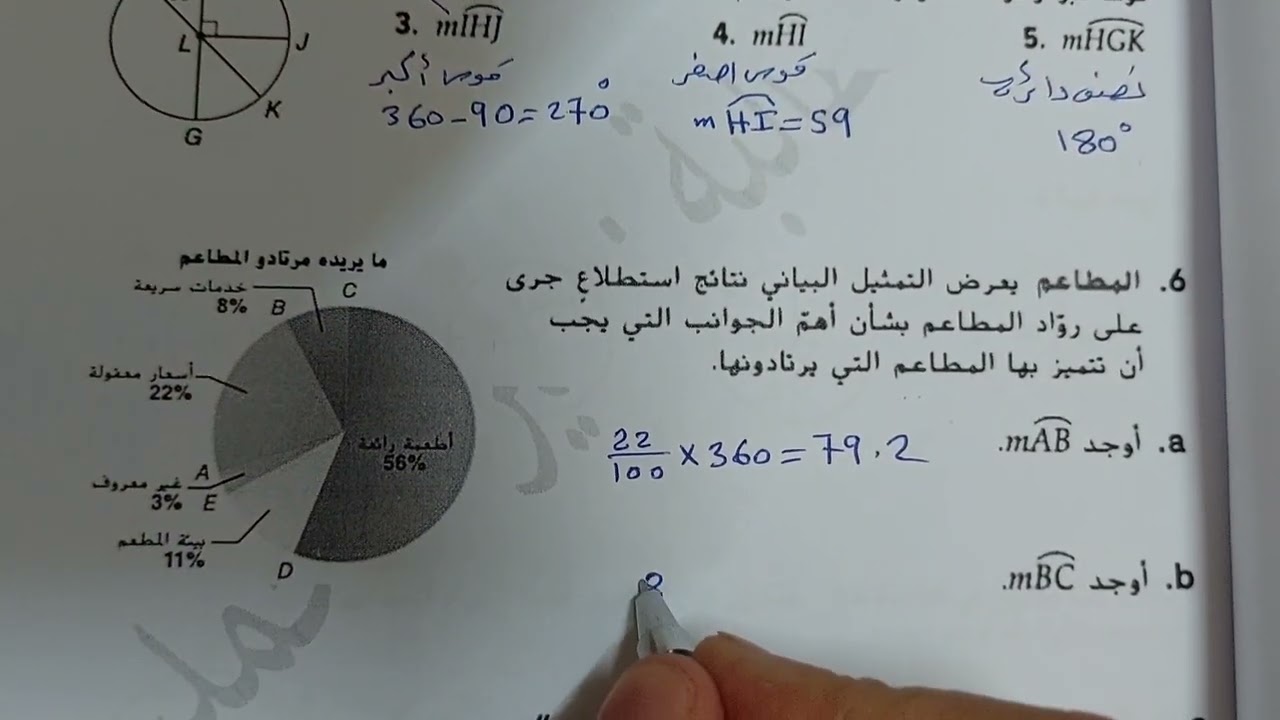 3. mIHJ
4. mHI
5. mHGK
L
J
K
G
قوس أكبر
360-90=270°
قوس اصغر
mHI=59
نصف دائرة
180°
ما يريده مرتادو المطاعم
خدمات سريعة
8%
B
C
أسعار معقولة
22%
أطعمة رائعة
56%
A
غير معروف
3%
E
بيئة المطعم
11%
D
6. المطاعم يعرض التمثيل البياني نتائج استطلاعٍ جرى
على روّاد المطاعم بشأن أهمّ الجوانب التي يجب
أن تتميز بها المطاعم التي يرتادونها.
a. أوجد mAB.
22/100 × 360 = 79.2
b. أوجد mBC.